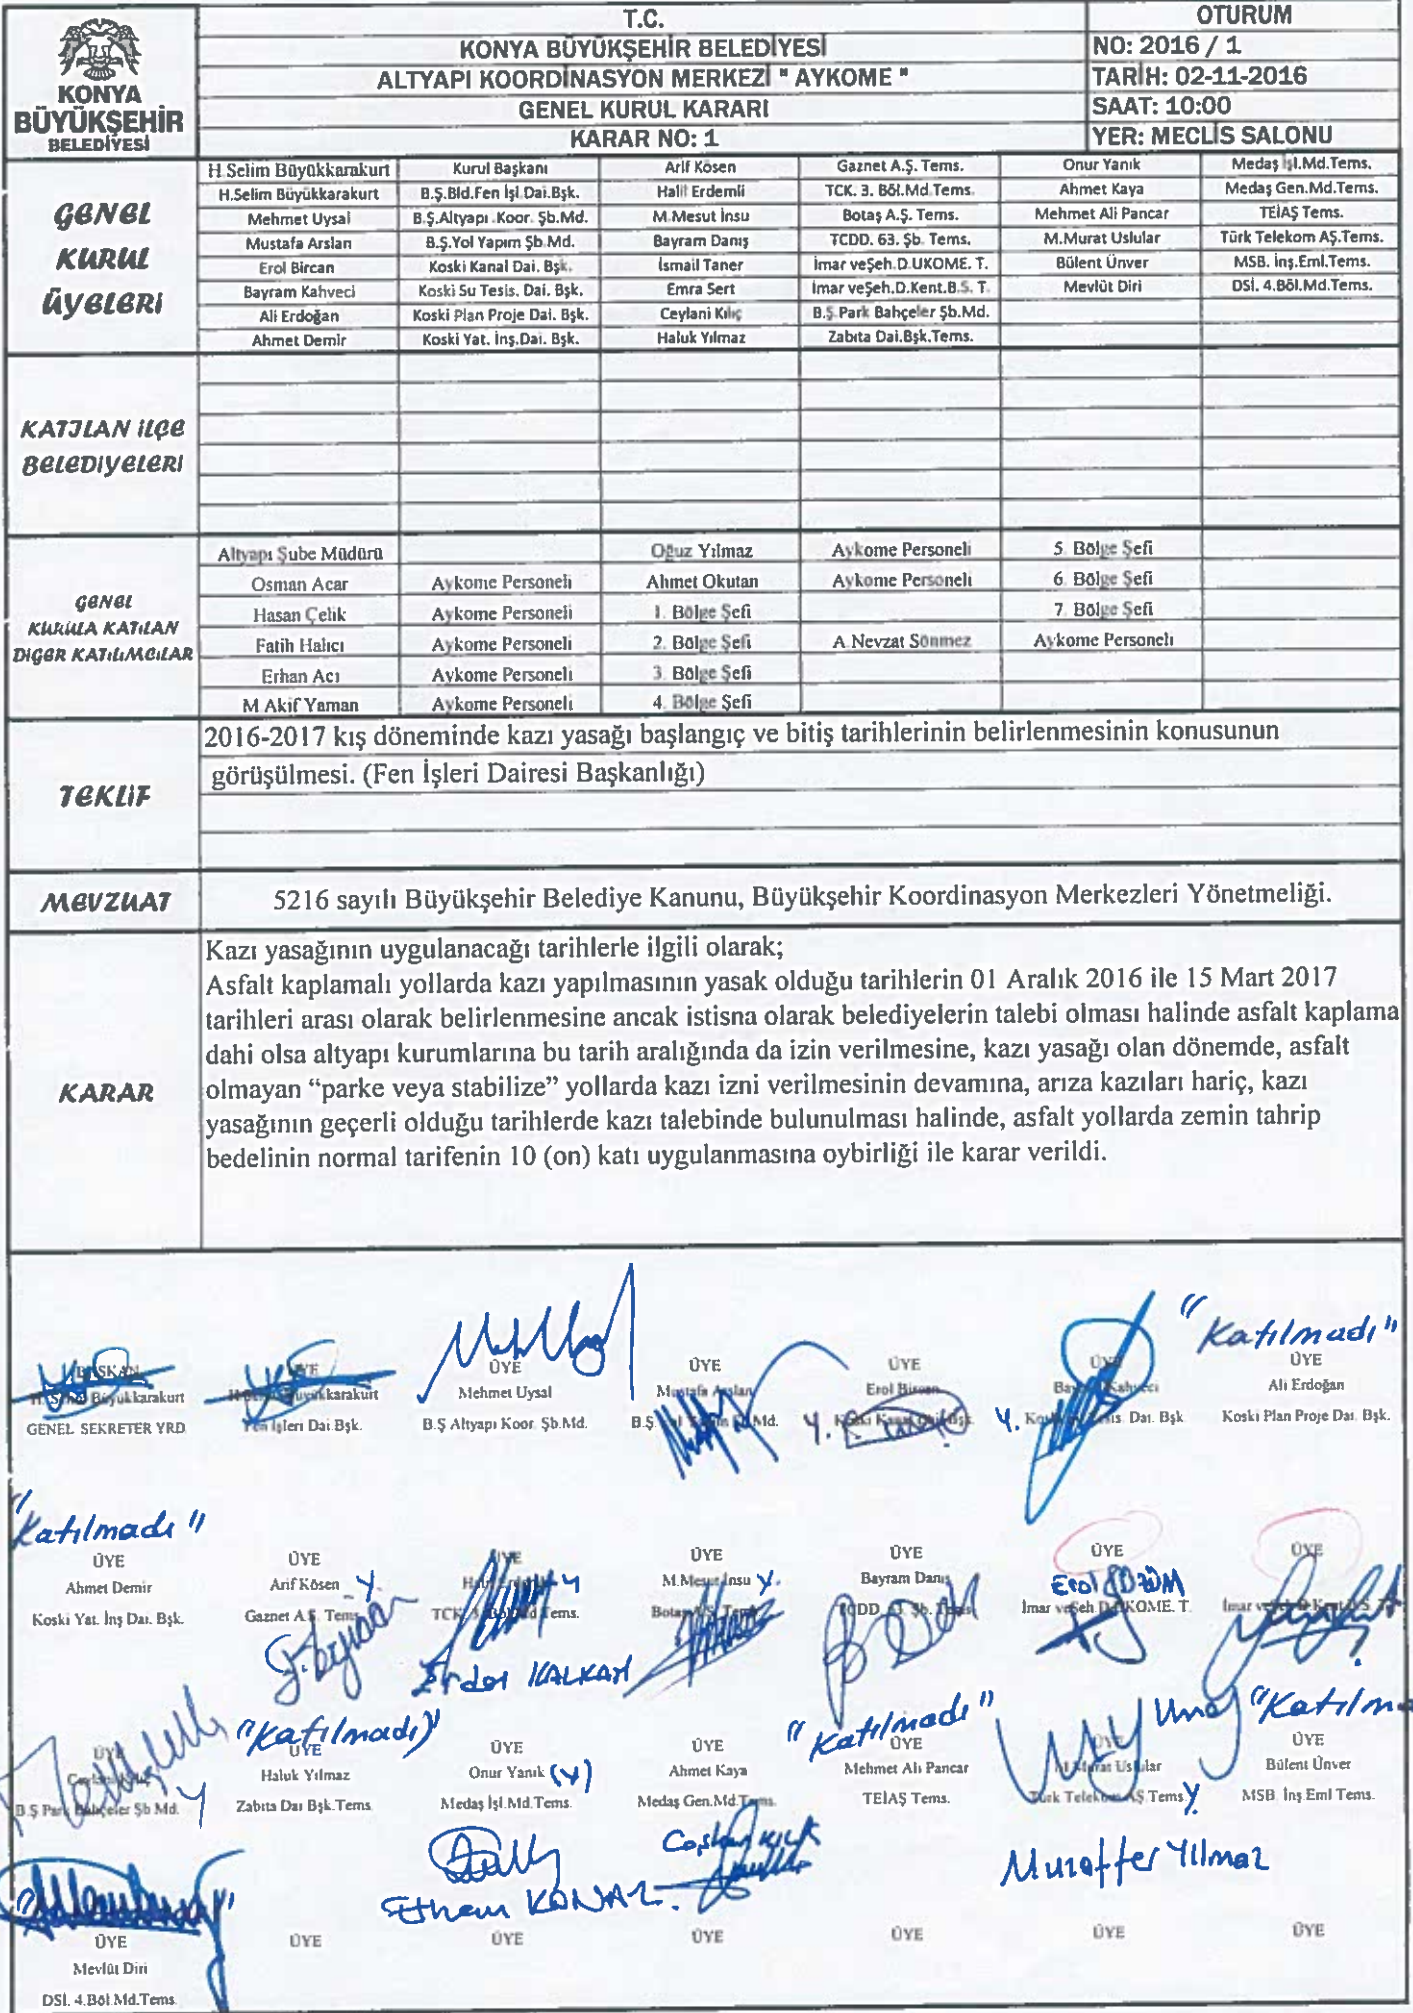 KONYA
BÜYÜKŞEHİR
BELEDİYESİ
T.C.
KONYA BÜYÜKŞEHİR BELEDİYESİ
ALTYAPI KOORDİNASYON MERKEZİ " AYKOME "
GENEL KURUL KARARI
KARAR NO: 1
OTURUM
NO: 2016 / 1
TARİH: 02-11-2016
SAAT: 10:00
YER: MECLİS SALONU
GENEL
KURUL
ÜYELERİ
H.Selim Büyükkarakurt Kurul Başkanı Arif Kösen Gaznet A.Ş. Tems. Onur Yanık Medaş İşl.Md.Tems.
H.Selim Büyükkarakurt B.Ş.Bld.Fen İşl.Dai.Bşk. Halil Erdemli TCK. 3. Böl.Md.Tems. Ahmet Kaya Medaş Gen.Md.Tems.
Mehmet Uysal B.Ş.Altyapı .Koor. Şb.Md. M.Mesut İnsu Botaş A.Ş. Tems. Mehmet Ali Pancar TEİAŞ Tems.
Mustafa Arslan B.Ş.Yol Yapım Şb.Md. Bayram Danış TCDD. 63. Şb. Tems. M.Murat Uslular Türk Telekom AŞ.Tems.
Erol Bircan Koski Kanal Dai. Bşk. İsmail Taner İmar veŞeh.D.UKOME. T. Bülent Ünver MSB. İnş.Eml.Tems.
Bayram Kahveci Koski Su Tesis. Dai. Bşk. Emra Sert İmar veŞeh.D.Kent.B.S. T. Mevlüt Diri DSİ. 4.Böl.Md.Tems.
Ali Erdoğan Koski Plan Proje Dai. Bşk. Ceylani Kılıç B.Ş.Park Bahçeler Şb.Md.
Ahmet Demir Koski Yat. İnş.Dai. Bşk. Haluk Yılmaz Zabıta Dai.Bşk.Tems.
KATILAN İLÇE
BELEDİYELERİ
GENEL
KURULA KATILAN
DİĞER KATILIMCILAR
Altyapı Şube Müdürü Oğuz Yılmaz Aykome Personeli 5. Bölge Şefi
Osman Acar Aykome Personeli Ahmet Okutan Aykome Personeli 6. Bölge Şefi
Hasan Çelik Aykome Personeli 1. Bölge Şefi 7. Bölge Şefi
Fatih Halıcı Aykome Personeli 2. Bölge Şefi A.Nevzat Sönmez Aykome Personeli
Erhan Acı Aykome Personeli 3. Bölge Şefi
M.Akif Yaman Aykome Personeli 4. Bölge Şefi
TEKLİF
2016-2017 kış döneminde kazı yasağı başlangıç ve bitiş tarihlerinin belirlenmesinin konusunun
görüşülmesi. (Fen İşleri Dairesi Başkanlığı)
MEVZUAT
5216 sayılı Büyükşehir Belediye Kanunu, Büyükşehir Koordinasyon Merkezleri Yönetmeliği.
KARAR
Kazı yasağının uygulanacağı tarihlerle ilgili olarak;
Asfalt kaplamalı yollarda kazı yapılmasının yasak olduğu tarihlerin 01 Aralık 2016 ile 15 Mart 2017
tarihleri arası olarak belirlenmesine ancak istisna olarak belediyelerin talebi olması halinde asfalt kaplama
dahi olsa altyapı kurumlarına bu tarih aralığında da izin verilmesine, kazı yasağı olan dönemde, asfalt
olmayan “parke veya stabilize” yollarda kazı izni verilmesinin devamına, arıza kazıları hariç, kazı
yasağının geçerli olduğu tarihlerde kazı talebinde bulunulması halinde, asfalt yollarda zemin tahrip
bedelinin normal tarifenin 10 (on) katı uygulanmasına oybirliği ile karar verildi.
"Katılmadı"
BAŞKAN ÜYE ÜYE ÜYE ÜYE ÜYE ÜYE
H. Selim Büyükkarakurt H.Selim Büyükkarakurt Mehmet Uysal Mustafa Arslan Erol Bircan Bayram Kahveci Ali Erdoğan
GENEL SEKRETER YRD. Fen İşleri Dai.Bşk. B.Ş Altyapı Koor. Şb.Md. B.Ş. Yol Yapım Şb.Md. Y. Koski Kanal Dai. Bşk. Y. Koski Su Tesis. Dai. Bşk. Koski Plan Proje Dai. Bşk.
"Katılmadı"
ÜYE ÜYE ÜYE ÜYE ÜYE ÜYE ÜYE
Ahmet Demir Arif Kösen Y. Halil Erdemli Y M.Mesut İnsu Y. Bayram Danış Erol
Koski Yat. İnş Dai. Bşk. Gaznet A.Ş. Tems. TCK. 3. Böl.Md.Tems. Botaş A.Ş. Tems. TCDD. 63. Şb. Tems. İmar veŞeh.D.UKOME. T. İmar veŞeh.D.Kent.B.S. T.
KALKAN
"Katılmadı" "Katılmadı" "Katılma
ÜYE ÜYE ÜYE ÜYE ÜYE ÜYE
Ceylani Kılıç Haluk Yılmaz Onur Yanık (Y) Ahmet Kaya Mehmet Ali Pancar M.Murat Uslular Bülent Ünver
B.Ş Park Bahçeler Şb Md. Y Zabıta Dai Bşk.Tems. Medaş İşl.Md.Tems. Medaş Gen.Md.Tems. TEİAŞ Tems. Türk Telekom AŞ.Tems. Y MSB. İnş.Eml Tems.
Muzaffer Yılmaz
ÜYE ÜYE ÜYE ÜYE ÜYE ÜYE ÜYE
Mevlüt Diri
DSİ. 4.Böl.Md.Tems.